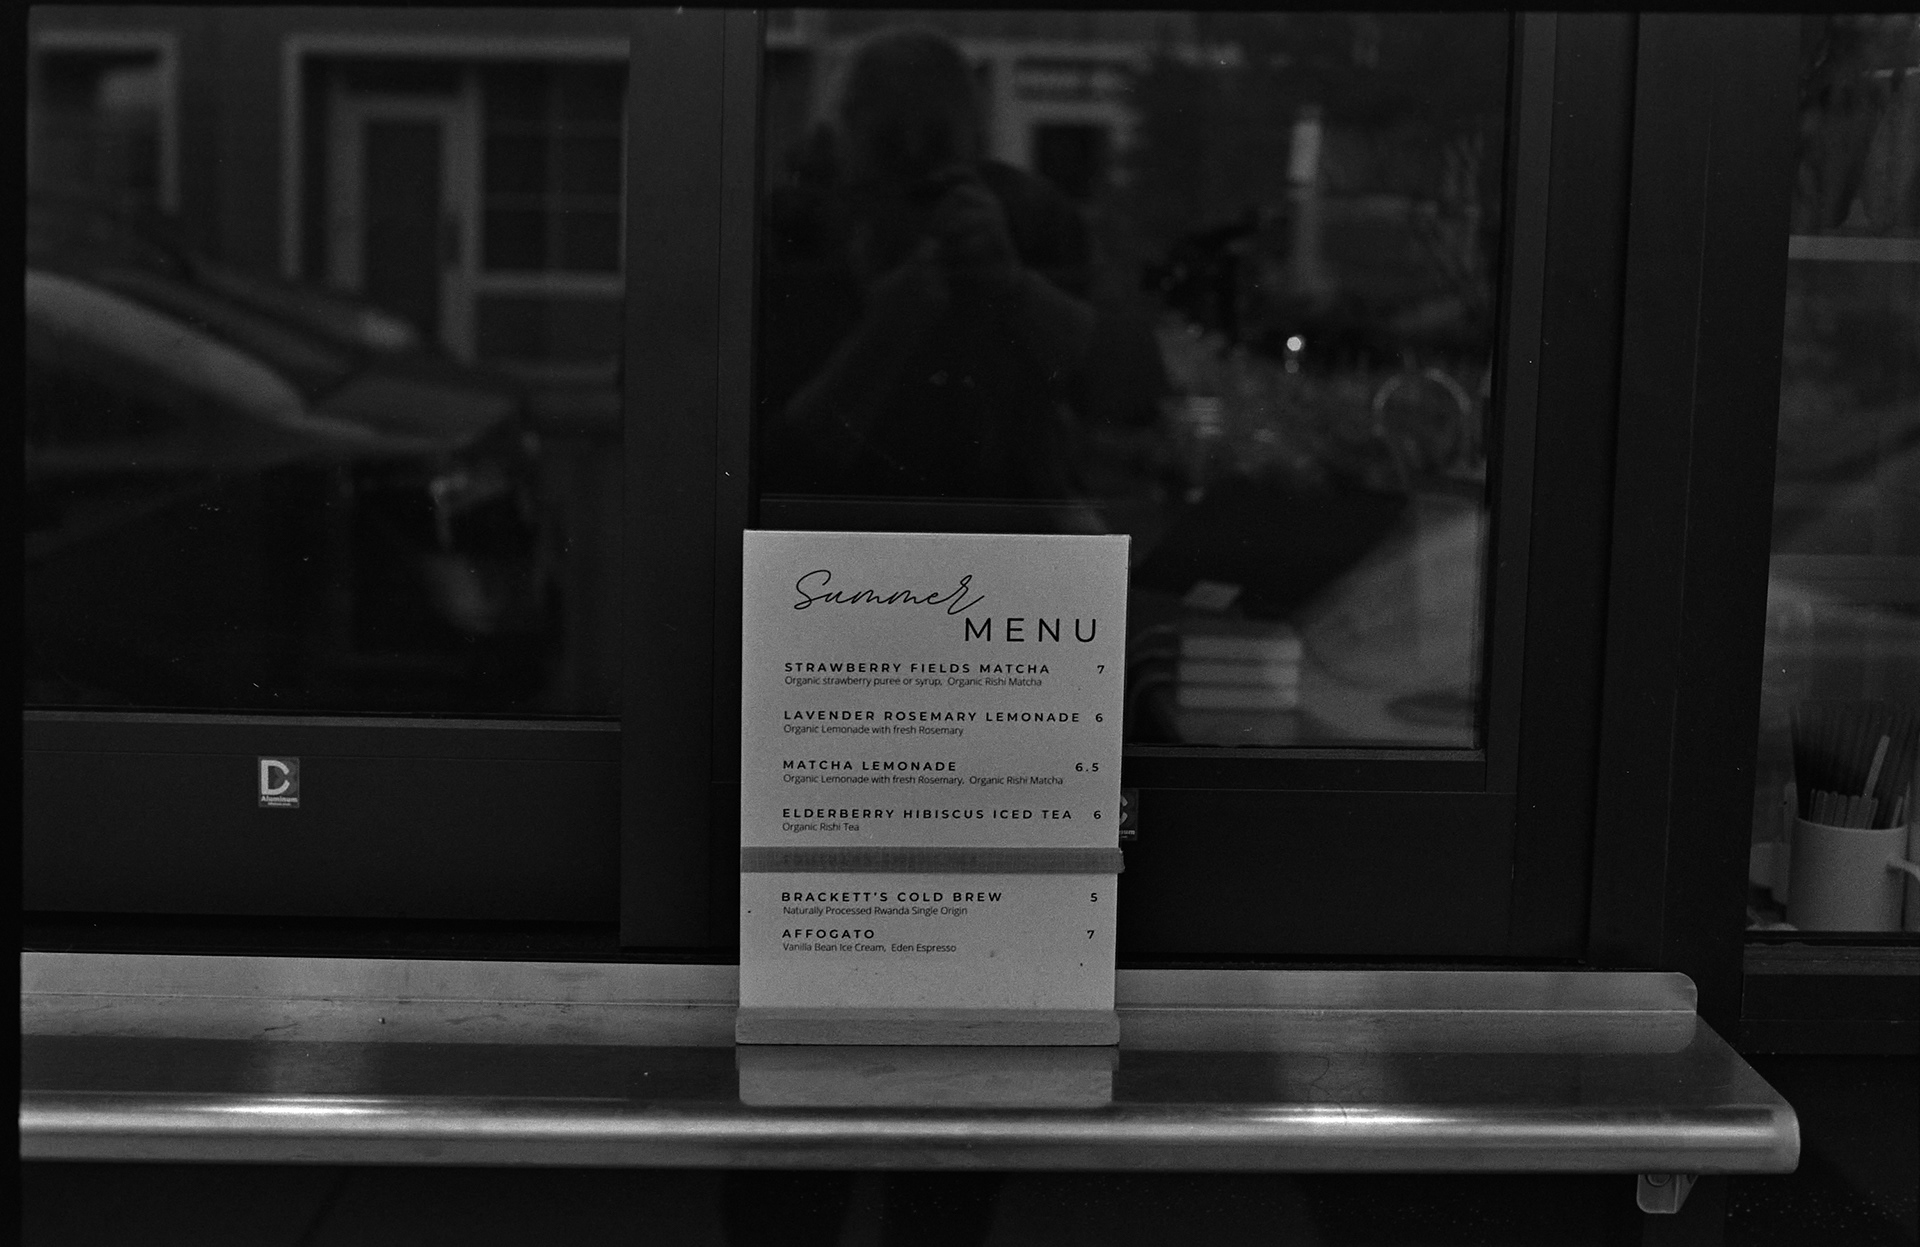 Summer
MENU
STRAWBERRY FIELDS MATCHA 7
Organic strawberry puree or syrup, Organic Rishi Matcha
LAVENDER ROSEMARY LEMONADE 6
Organic Lemonade with fresh Rosemary
MATCHA LEMONADE 6.5
Organic Lemonade with fresh Rosemary, Organic Rishi Matcha
ELDERBERRY HIBISCUS ICED TEA 6
Organic Rishi Tea
BRACKETT'S COLD BREW 5
Naturally Processed Rwanda Single Origin
AFFOGATO 7
Vanilla Bean Ice Cream, Eden Espresso
Aluminum